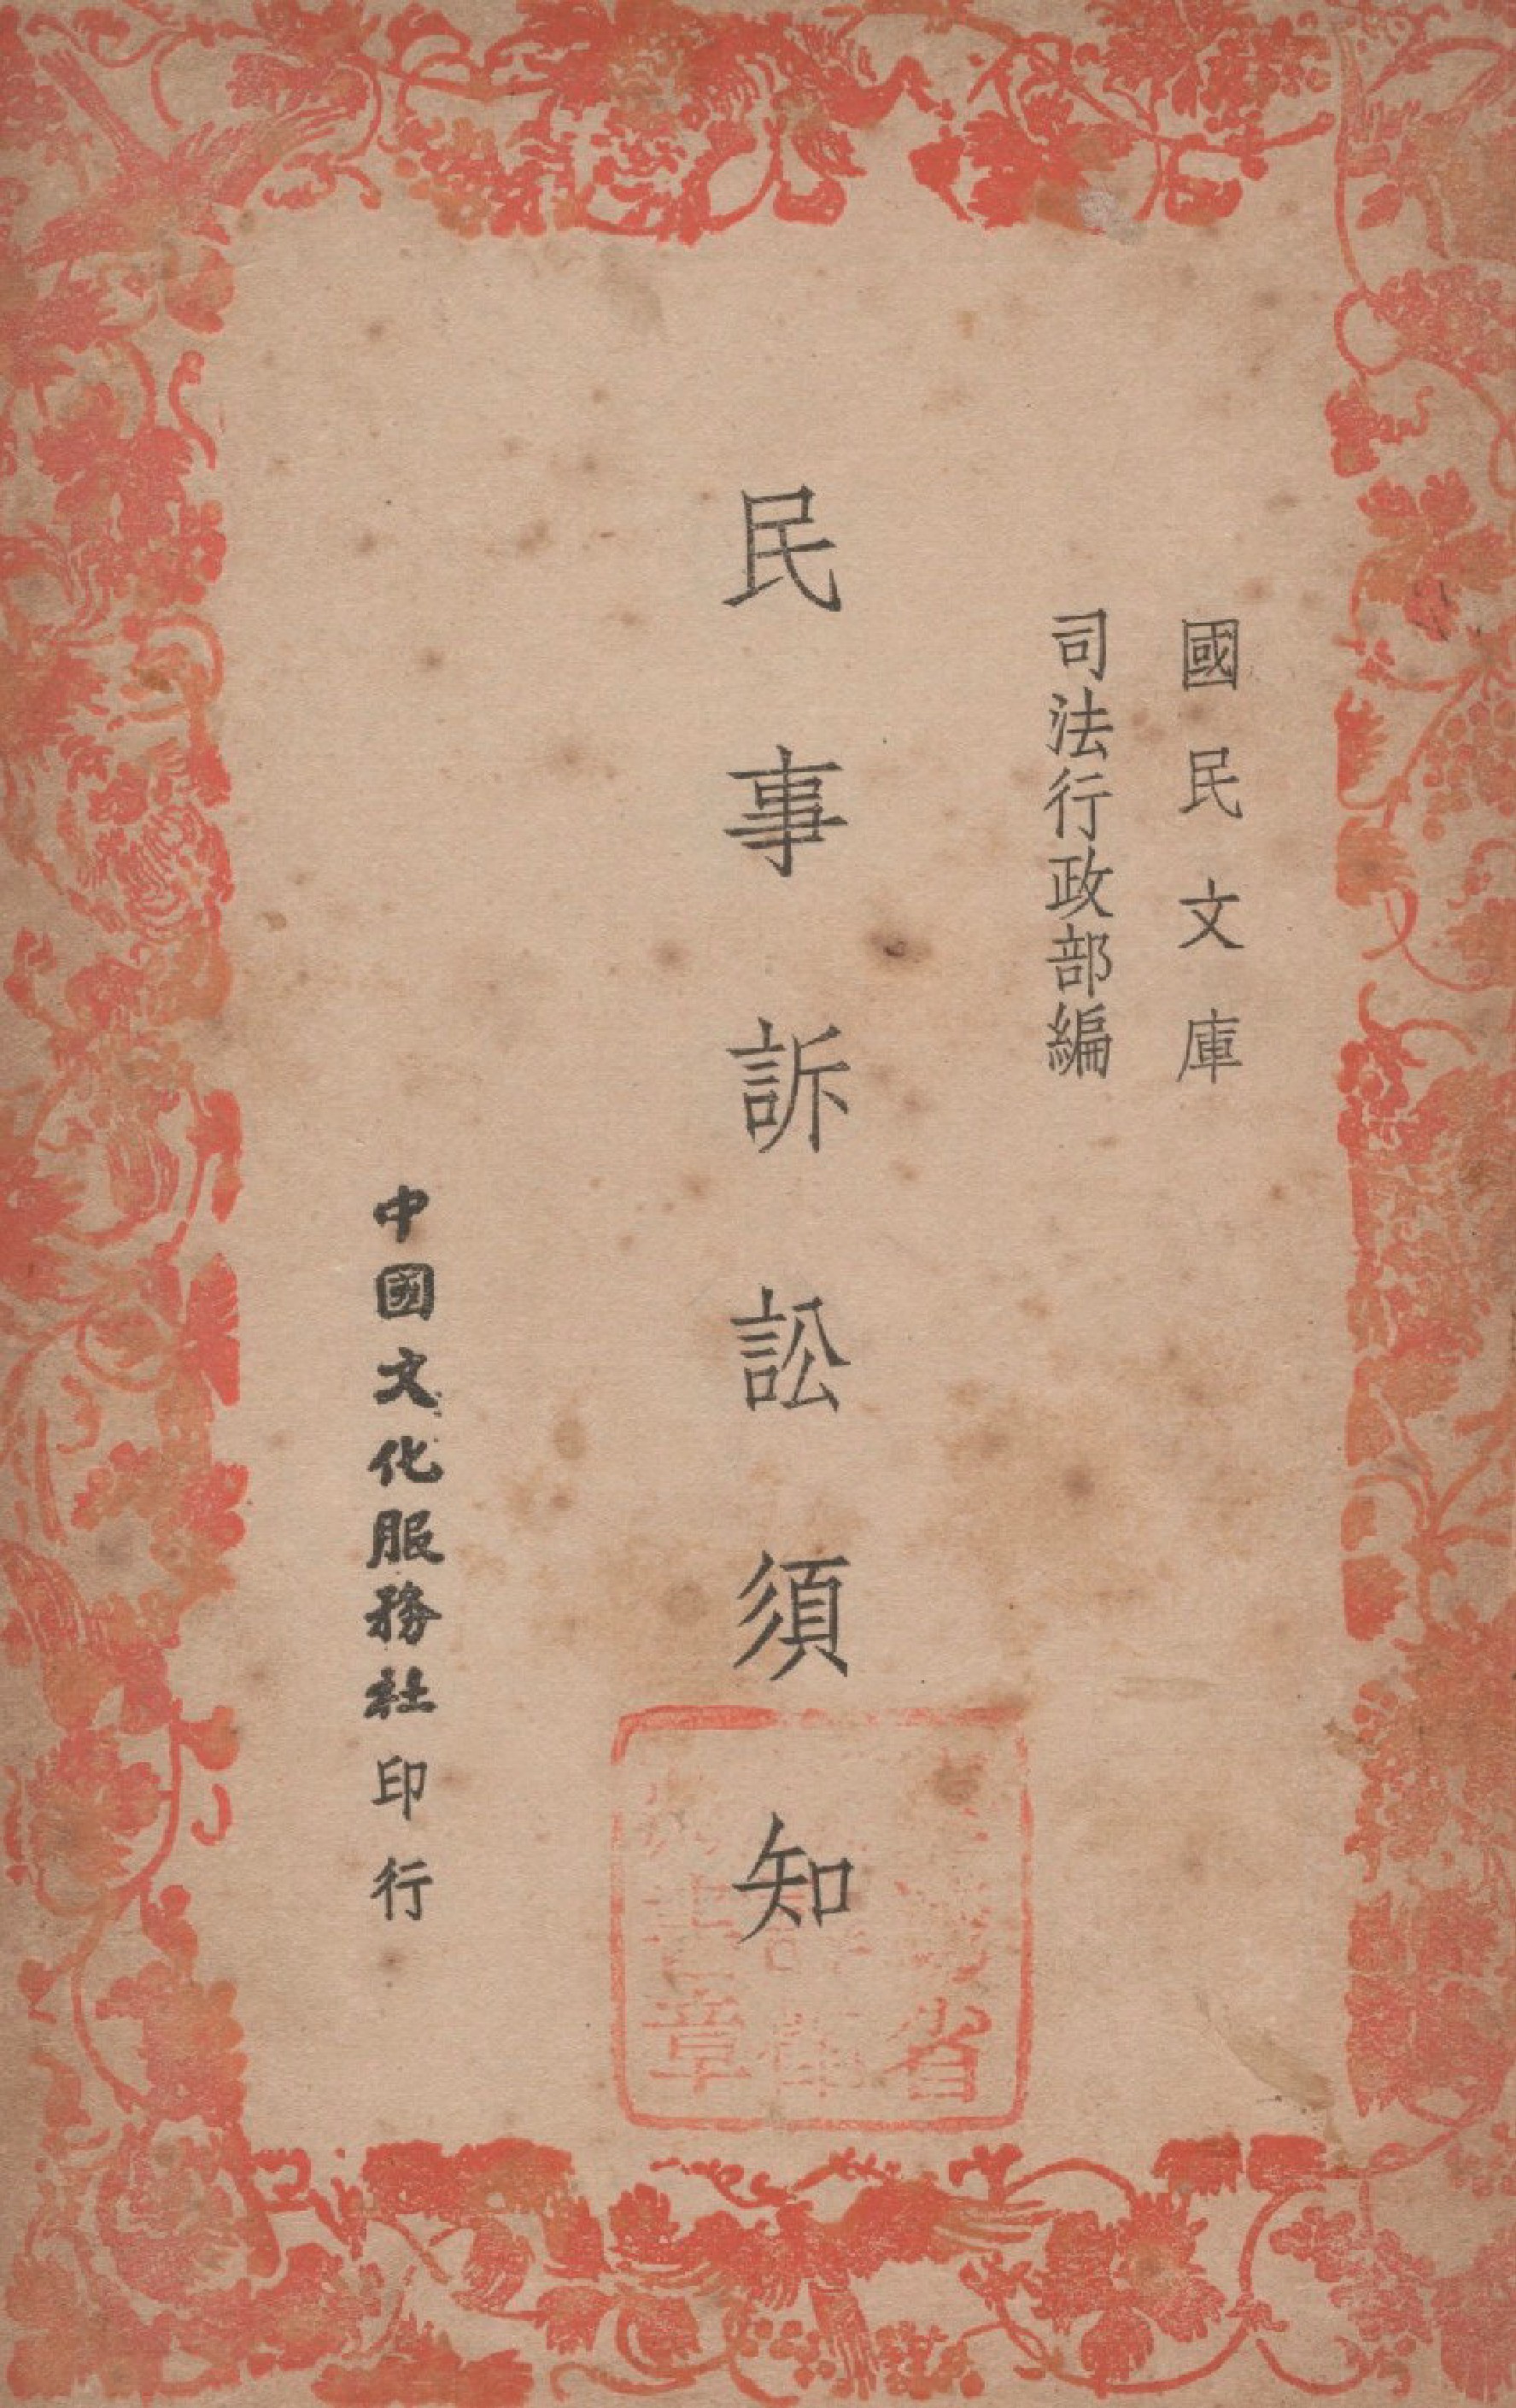 國民文庫
司法行政部編
民事訴訟須知
中國文化服務社印行
省
章